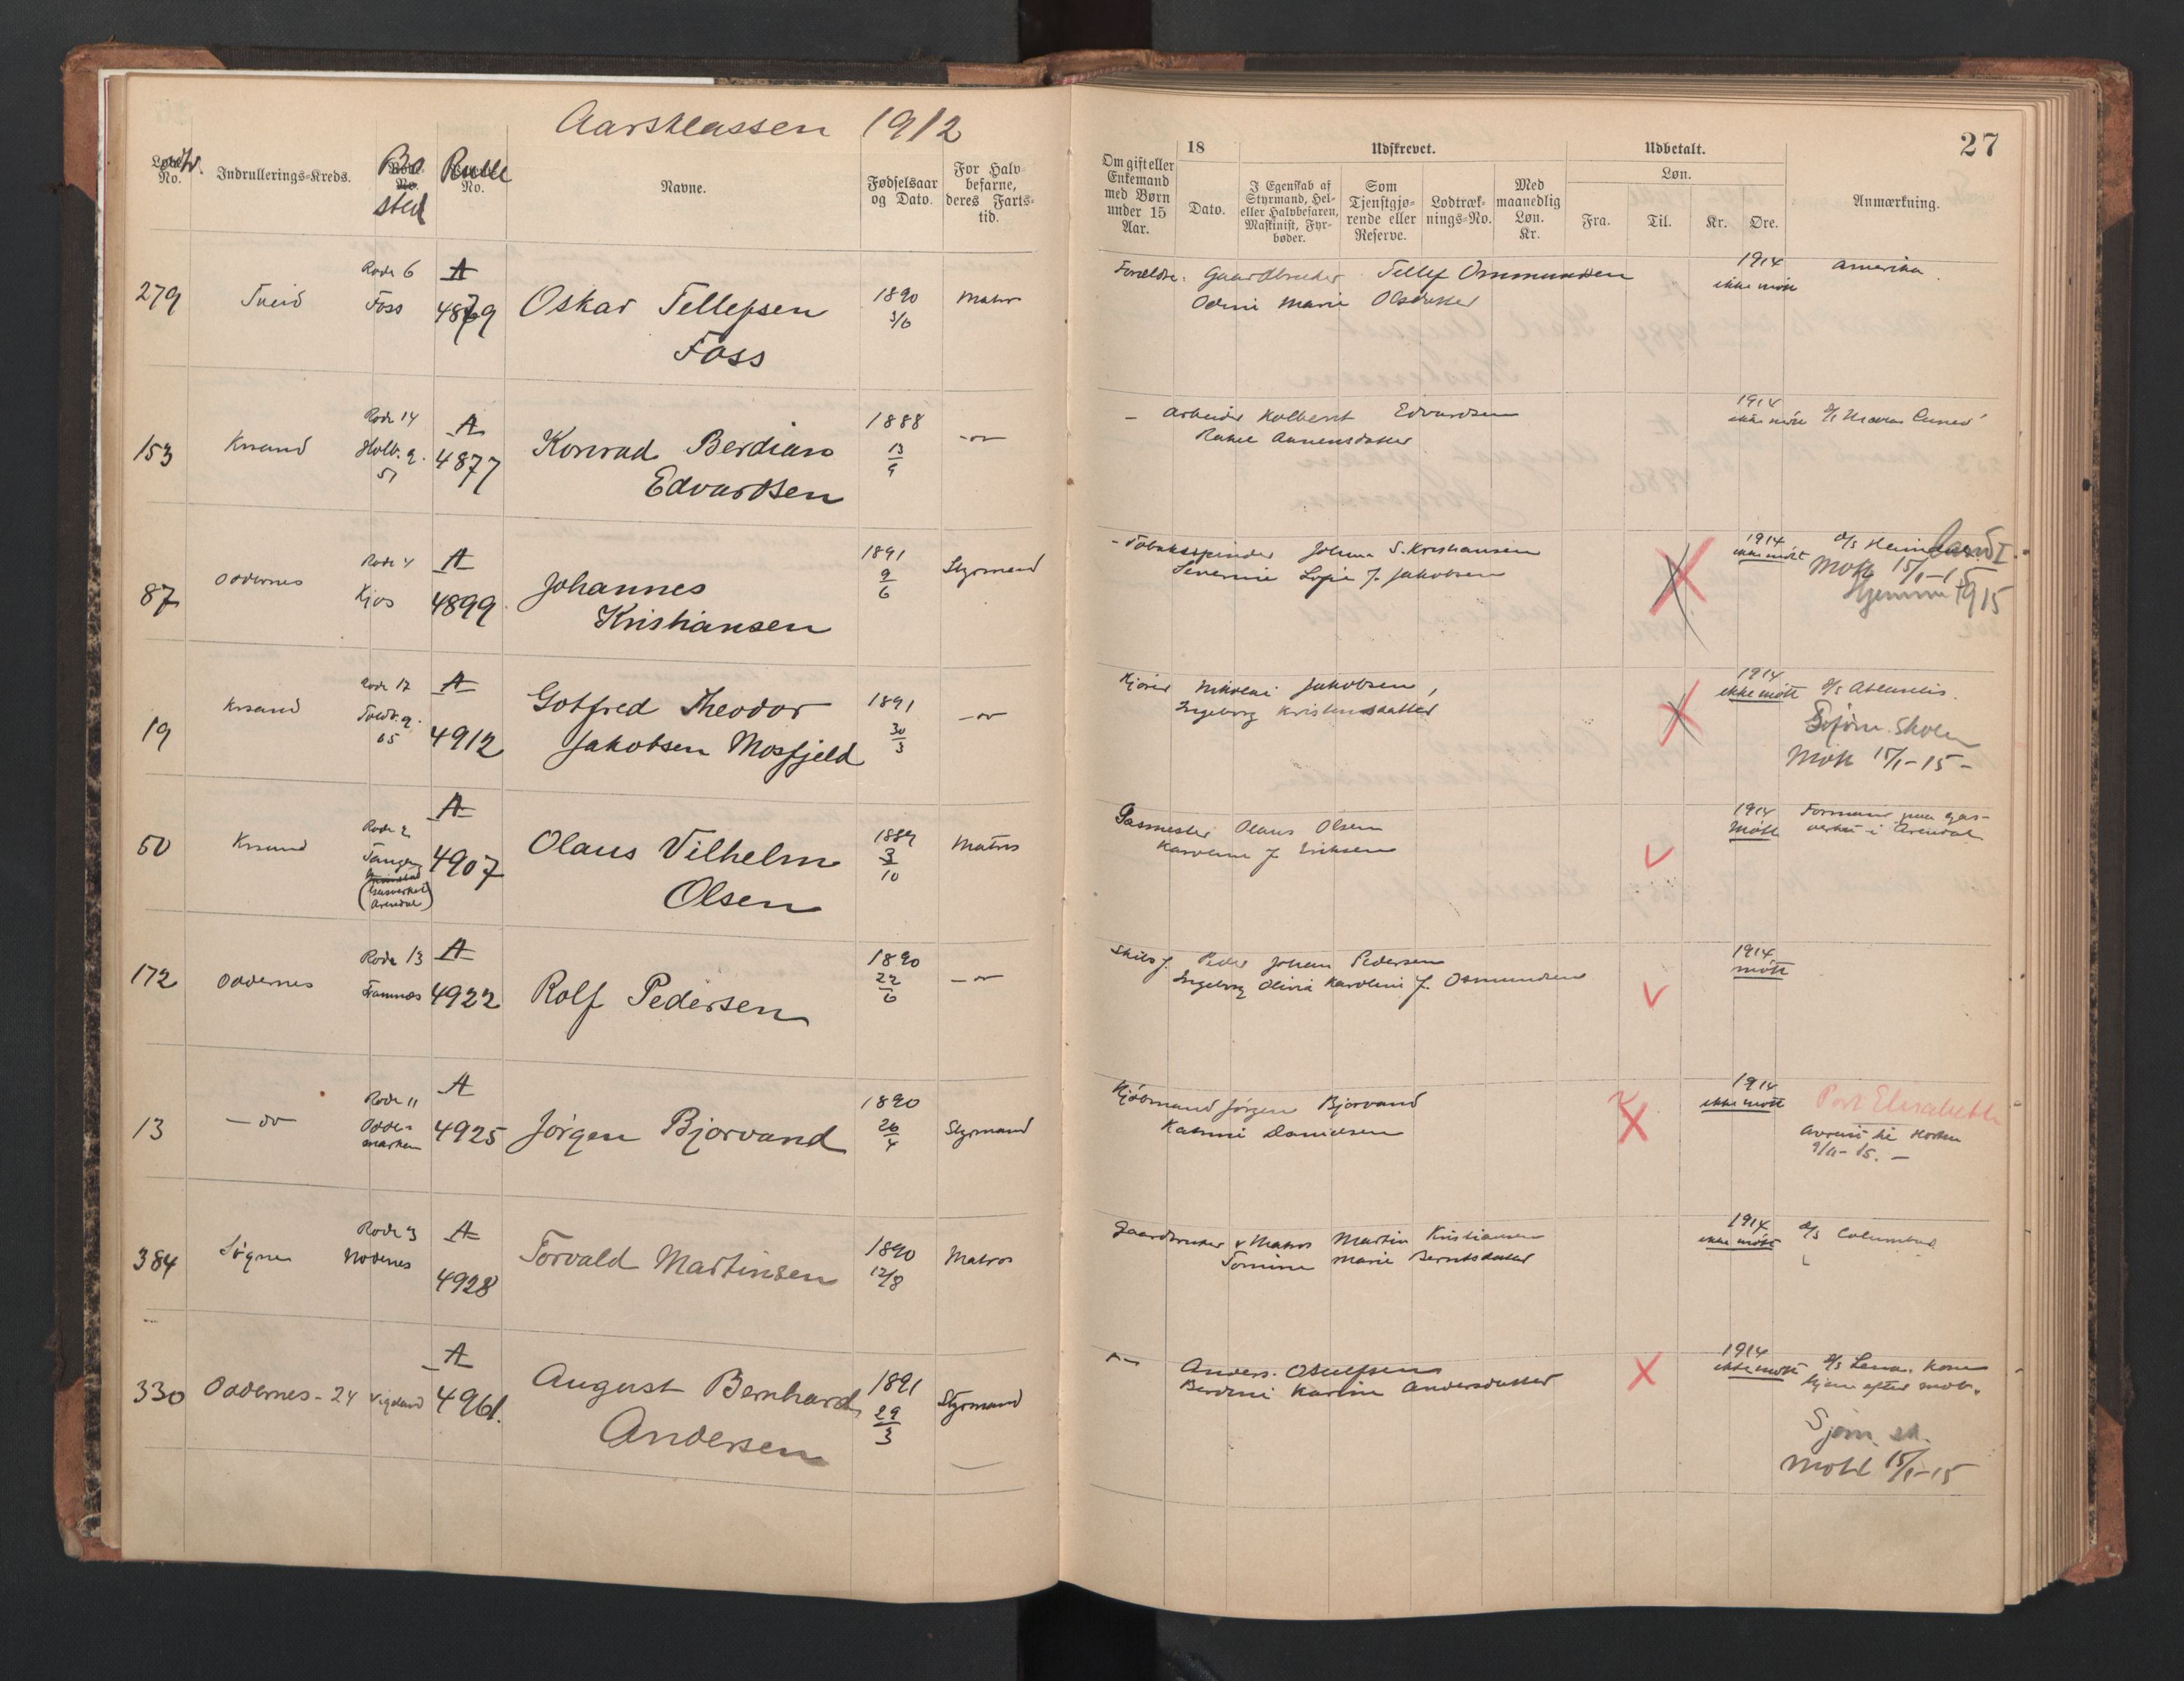 Aarsklassen 1912
27
No.
Indrullerings-Kreds.
Bo
sted
Rulle
No.
Navne.
Fødselsaar
og Dato.
For Halv-
befarne,
deres Farts-
tid.
Om gift eller
Enkemand
med Børn
under 15
Aar.
18
Dato.
Udskrevet.
I Egenskab af
Styrmand, Hel-
eller Halvbefaren,
Maskinist, Fyr-
bøder.
Som
Tjenstgjø-
rende eller
Reserve.
Lodtræk-
nings-No.
Med
maanedlig
Løn.
Kr.
Udbetalt.
Løn.
Fra.
Til.
Kr.
Øre.
Anmærkning.
279 Tveid Rode 6 Foss A 4879
Oskar Tellefsen
Foss
1890
3/6
Matros
Forældre: Gaardbruker Tellef Ommundsen
Odini Marie Olsdatter
1914
ikke mött
Amerika.
153 Krsand Rode 14 Holb. g. 51 A 4877
Konrad Berdiano
Edvardsen
1888
13
9
-"-
- Arbeider Kolbent Edvardsen
Rakel Aanensdatter
1914
ikke mött
87 Oddernes Rode 4 Kjos A 4899
Johannes
Kristiansen
1891
9
6
Styrmand
- Tobaksspinder Johan S. Kristiansen
Severine Sofie f. Jakobsen
1914
ikke mött
Mött 15/1-15
Hjemme 1915
19 Krsand Rode 17 Toldb. g. 65 A 4912
Gotfred Theodor
Jakobsen Mosfjeld
1891
30
3
-"-
Kjører Nikolai Jakobsen,
Ingeborg Kristensdatter
1914
ikke mött
D/S Atlantis.
Sjöm. Skolen
Mött 15/1-15-
50 Krsand Rode 2 Tangen
(Gasverket
Arendal)
A 4907
Olaus Vilhelm
Olsen
1889
3
10
Matros
Gasmester Olaus Olsen
Karoline f. Eriksen
1914
Mött
Formand paa gas-
verket i Arendal
172 Oddernes Rode 13 Framnes A 4922
Rolf Pedersen
1890
22
6
-"-
Skibsf. Peder Johan Pedersen
Ingeborg Olivia Karolini f. Osmundsen
1914
mött
13 -"- Rode 11 Odder-
marken
A 4925
Jörgen Bjorvand
1890
26
4
Styrmand
Kjöbmand Jörgen Bjorvand
Katrine Danielsen
1914
ikke mött
Port Elisabeth
Avreist til Horten
9/11-15. -
384 Søgne Rode 3 Nodenes A 4928
Torvald Martinsen
1890
12/8
Matros
Gaardbruker & Matros Martin Kristiansen
Tomine Marie Berntsdatter
1914
ikke mött
D/S Columbus
330 Oddernes - 24 Vigeland A 4961.
August Bernhard
Andersen
1891
29
3
Styrmand
-"- Anders Osulfsen
Berdine Karine Andersdatter
1914
ikke mött
D/S Lena. Kom
hjem efter mob.
Sjöm. sk.
Mött 15/1-15